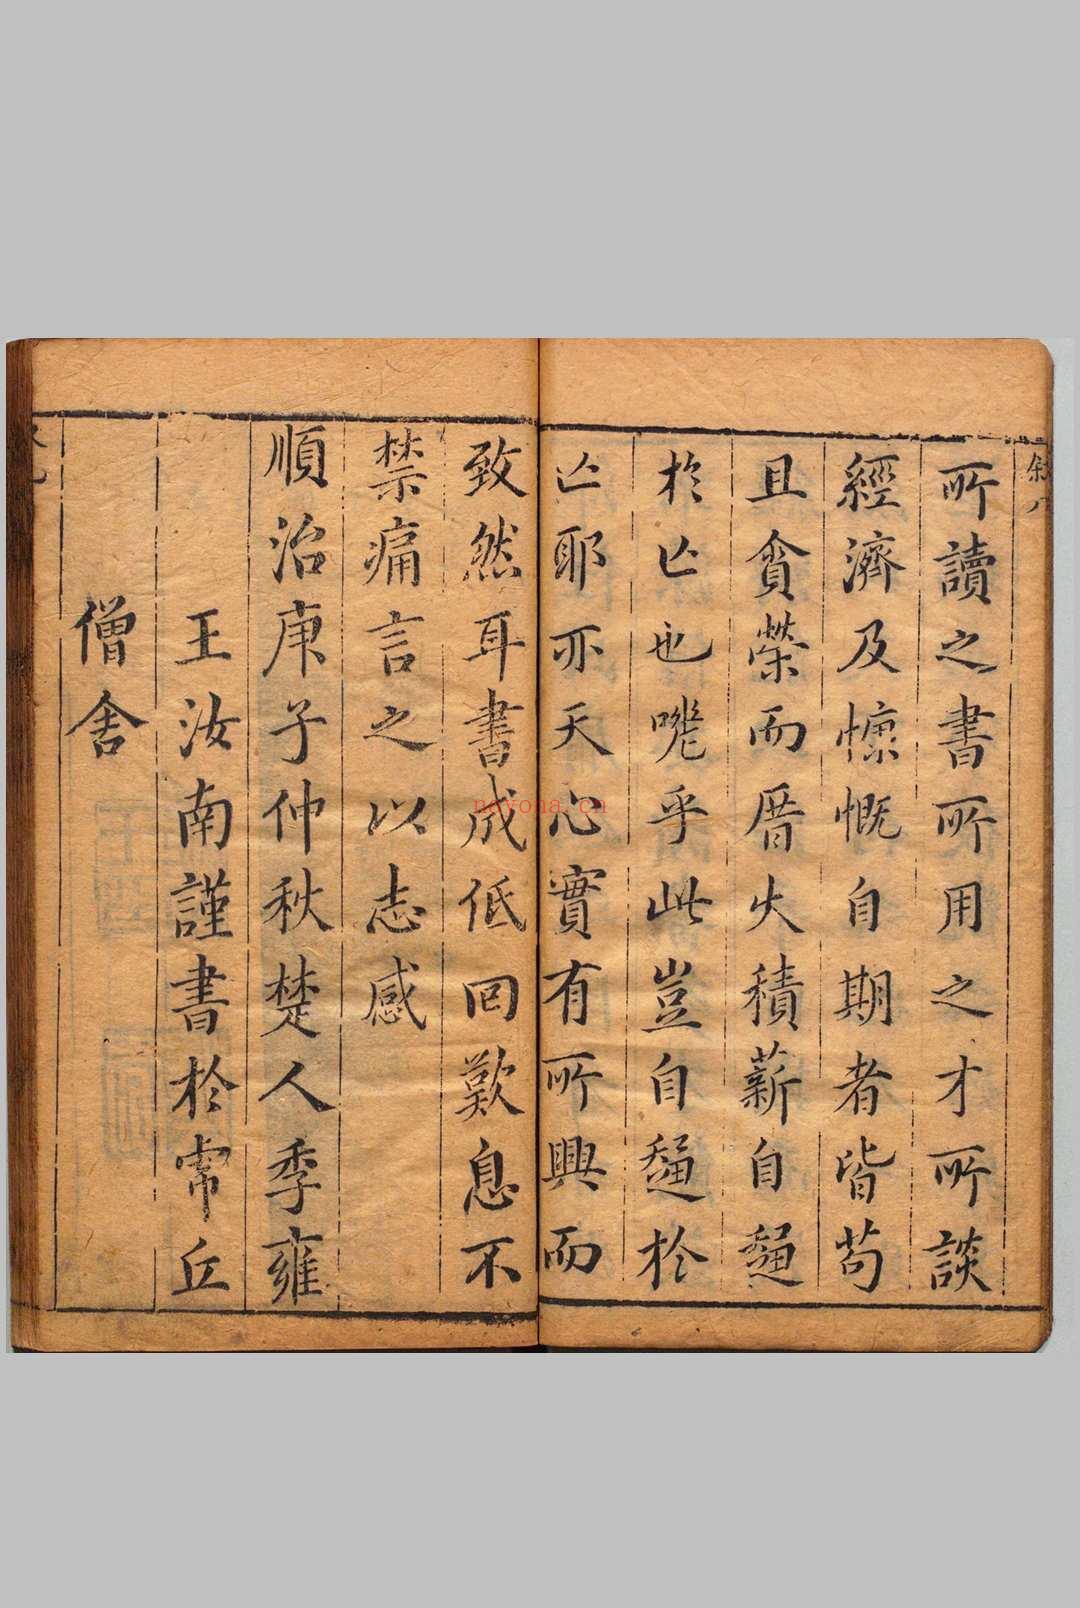 叙八
所讀之書所用之才所談
經濟及慷慨自期者皆苟
且貪榮而厝火積薪自趨
於亡也嘅乎此豈自趨於
亡耶亦天心實有所興而
致然耳書成低回歎息不
禁痛言之以志感
順治庚子仲秋楚人季雍
王汝南謹書於常丘
僧舍
nayona.cn